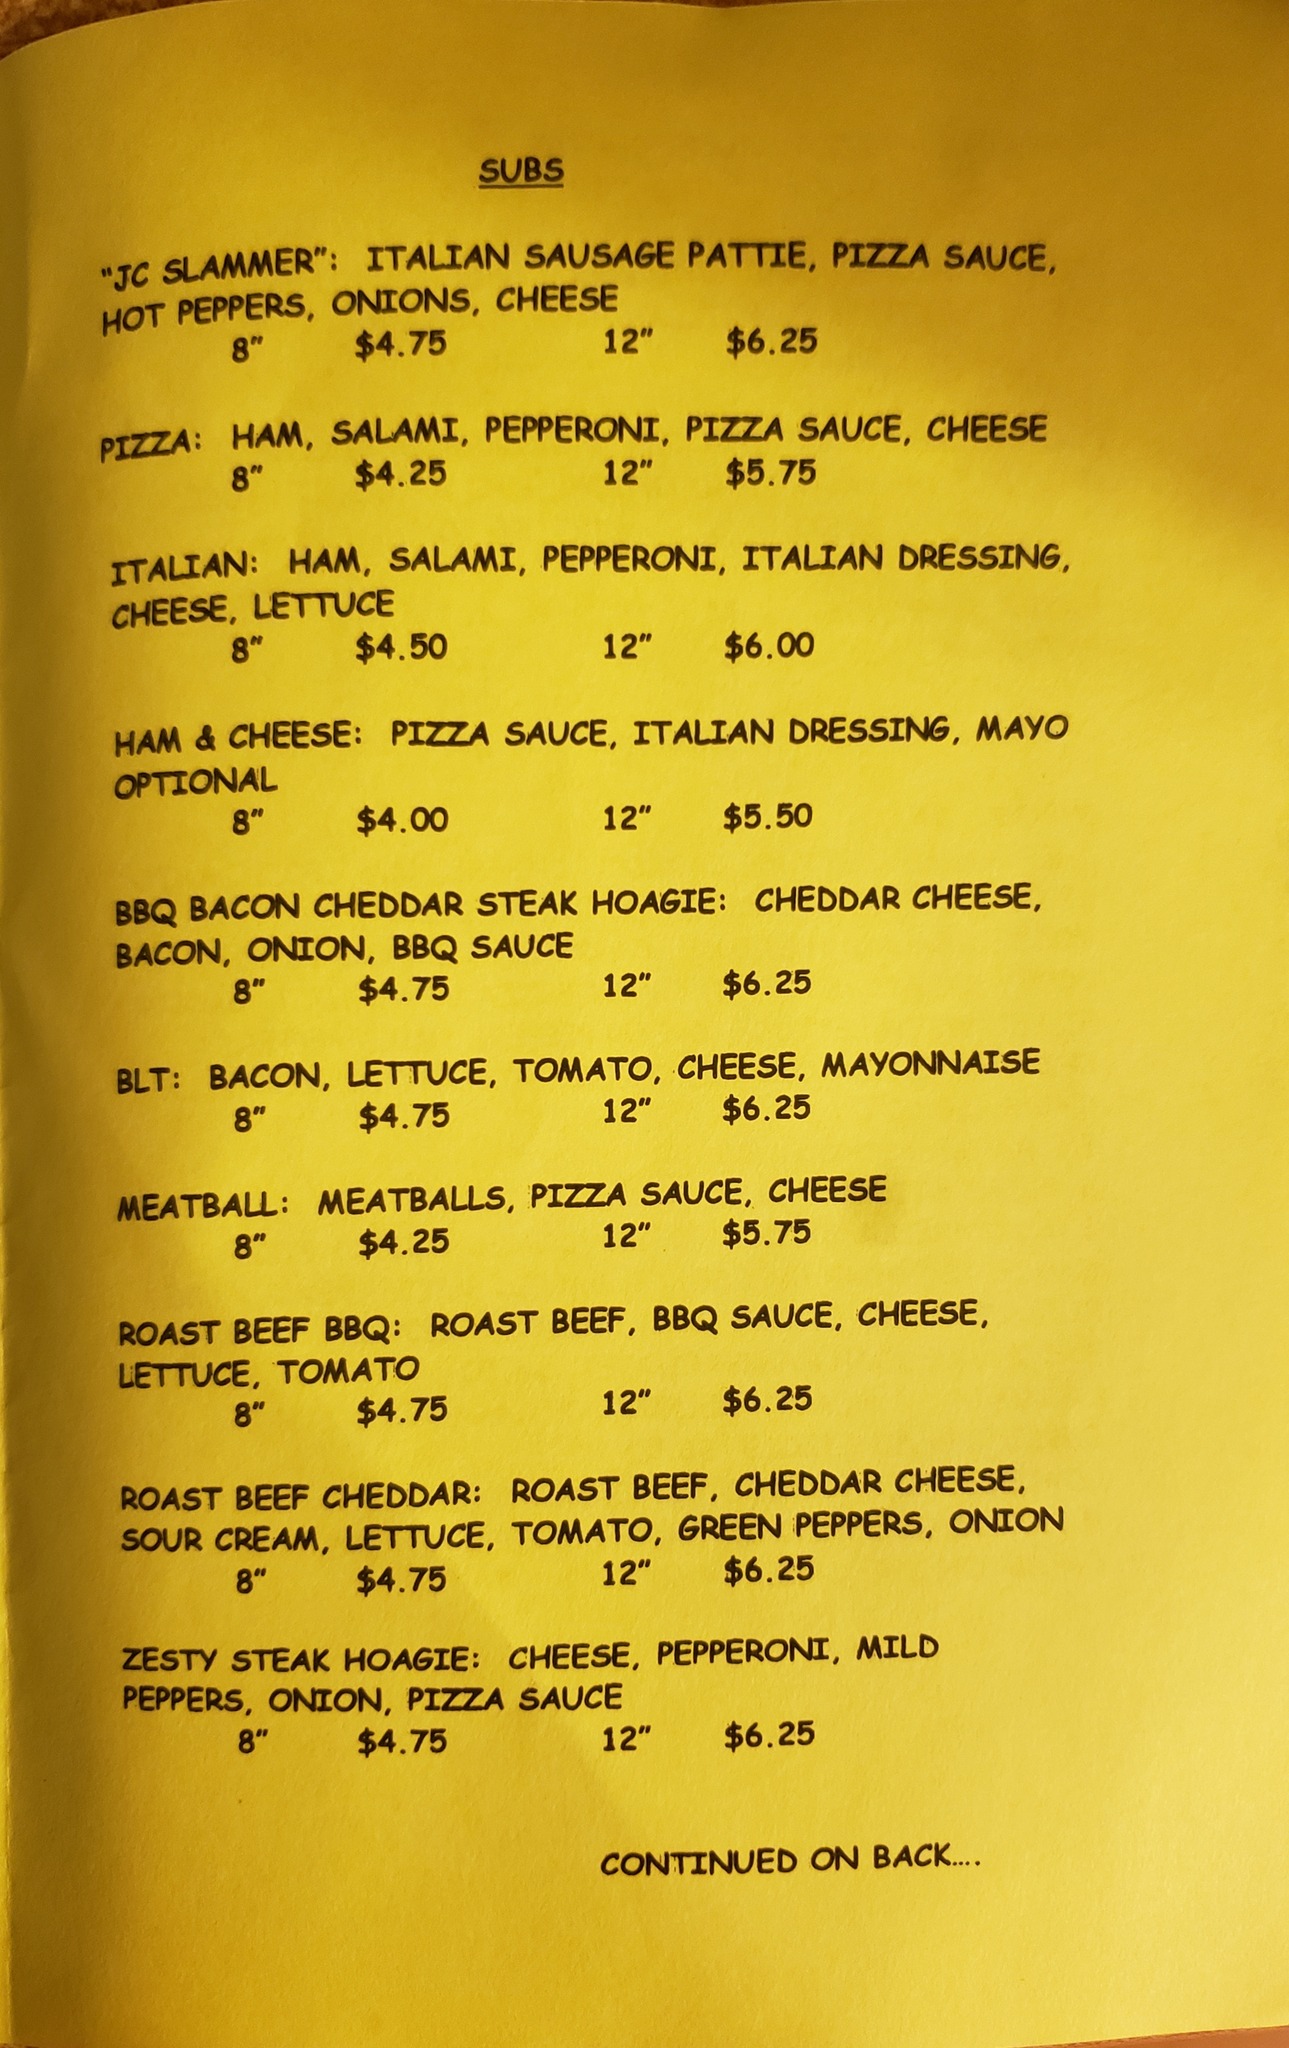 SUBS
"JC SLAMMER": ITALIAN SAUSAGE PATTIE, PIZZA SAUCE,
HOT PEPPERS, ONIONS, CHEESE
8" $4.75 12" $6.25
PIZZA: HAM, SALAMI, PEPPERONI, PIZZA SAUCE, CHEESE
8" $4.25 12" $5.75
ITALIAN: HAM, SALAMI, PEPPERONI, ITALIAN DRESSING,
CHEESE, LETTUCE
8" $4.50 12" $6.00
HAM & CHEESE: PIZZA SAUCE, ITALIAN DRESSING, MAYO
OPTIONAL
8" $4.00 12" $5.50
BBQ BACON CHEDDAR STEAK HOAGIE: CHEDDAR CHEESE,
BACON, ONION, BBQ SAUCE
8" $4.75 12" $6.25
BLT: BACON, LETTUCE, TOMATO, CHEESE, MAYONNAISE
8" $4.75 12" $6.25
MEATBALL: MEATBALLS, PIZZA SAUCE, CHEESE
8" $4.25 12" $5.75
ROAST BEEF BBQ: ROAST BEEF, BBQ SAUCE, CHEESE,
LETTUCE, TOMATO
8" $4.75 12" $6.25
ROAST BEEF CHEDDAR: ROAST BEEF, CHEDDAR CHEESE,
SOUR CREAM, LETTUCE, TOMATO, GREEN PEPPERS, ONION
8" $4.75 12" $6.25
ZESTY STEAK HOAGIE: CHEESE, PEPPERONI, MILD
PEPPERS, ONION, PIZZA SAUCE
8" $4.75 12" $6.25
CONTINUED ON BACK....